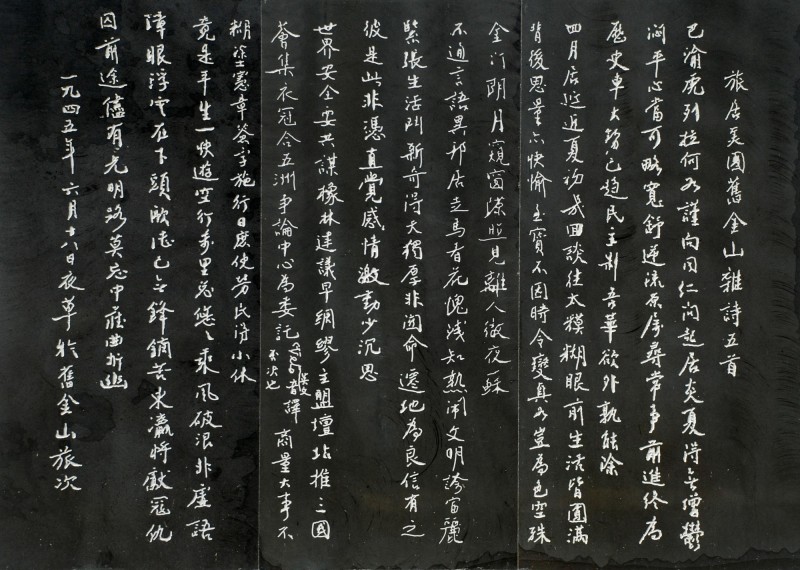 旅居美國舊金山雜詩五首
巴渝虎列拉何如謹向同仁問起居炎夏得無增鬱
悶平心當可略寬舒逆流原屬尋常事前進終為
歷史車大勢已趨民主制吾華欲外孰能除
四月居延近夏初幾回談往太模糊眼前生活皆圓滿
背後思量亦快愉玉實不因時令變真如豈為色空殊
金門陰月窺窗照見離人徹夜蘇
不通言語異邦居走馬看花愧淺知熱鬧文明誇富麗
緊張生活鬥新奇得天獨厚非關命遷地為良信有之
彼是此非憑直覺感情激動少沉思
世界安全要共謀橡林建議早綢繆主盟壇坫推三國
薈集衣冠合五洲爭論中心為委託英文音譯商量大事不
糊塗憲章簽字施行日庶使勞民得小休
竟是平生一快遊空行萬里忽悠悠乘風破浪非虛語
障眼浮雲在下頭歐德已無鋒鏑苦東瀛將獻寇仇
囚前途儘有光明路莫忘中曲折幽
一九四五年六月十八日夜草於舊金山旅次